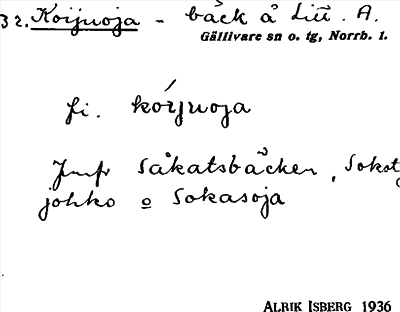 32. Koijuoja - bäck å Litt. A.
Gällivare sn o. tg, Norrb. l.
fi. kóijuoja
Jmfr Såkatsbäcken, Sokot
johko o Sokasoja
ALRIK ISBERG 1936